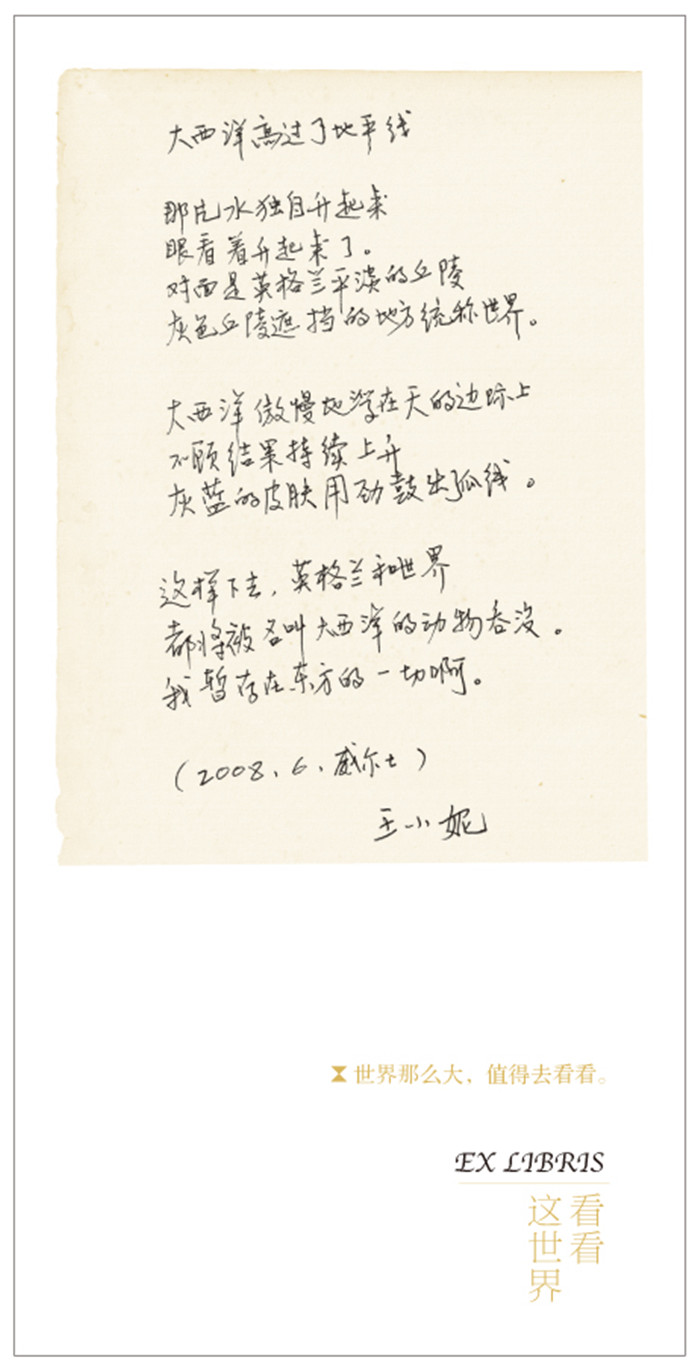 大西洋高过了地平线
那片水独自升起来
眼看着升起来了。
对面是英格兰平淡的丘陵
灰色丘陵遮挡的地方统称世界。
大西洋傲慢地浮在天的边际上
不顾结果持续上升
灰蓝的皮肤用劲鼓出弧线。
这样下去，英格兰和世界
都将被名叫大西洋的动物吞没。
我暂存在东方的一切啊。
（2008、6、威尔士）
王小妮
世界那么大，值得去看看。
EX LIBRIS
看看
这世界